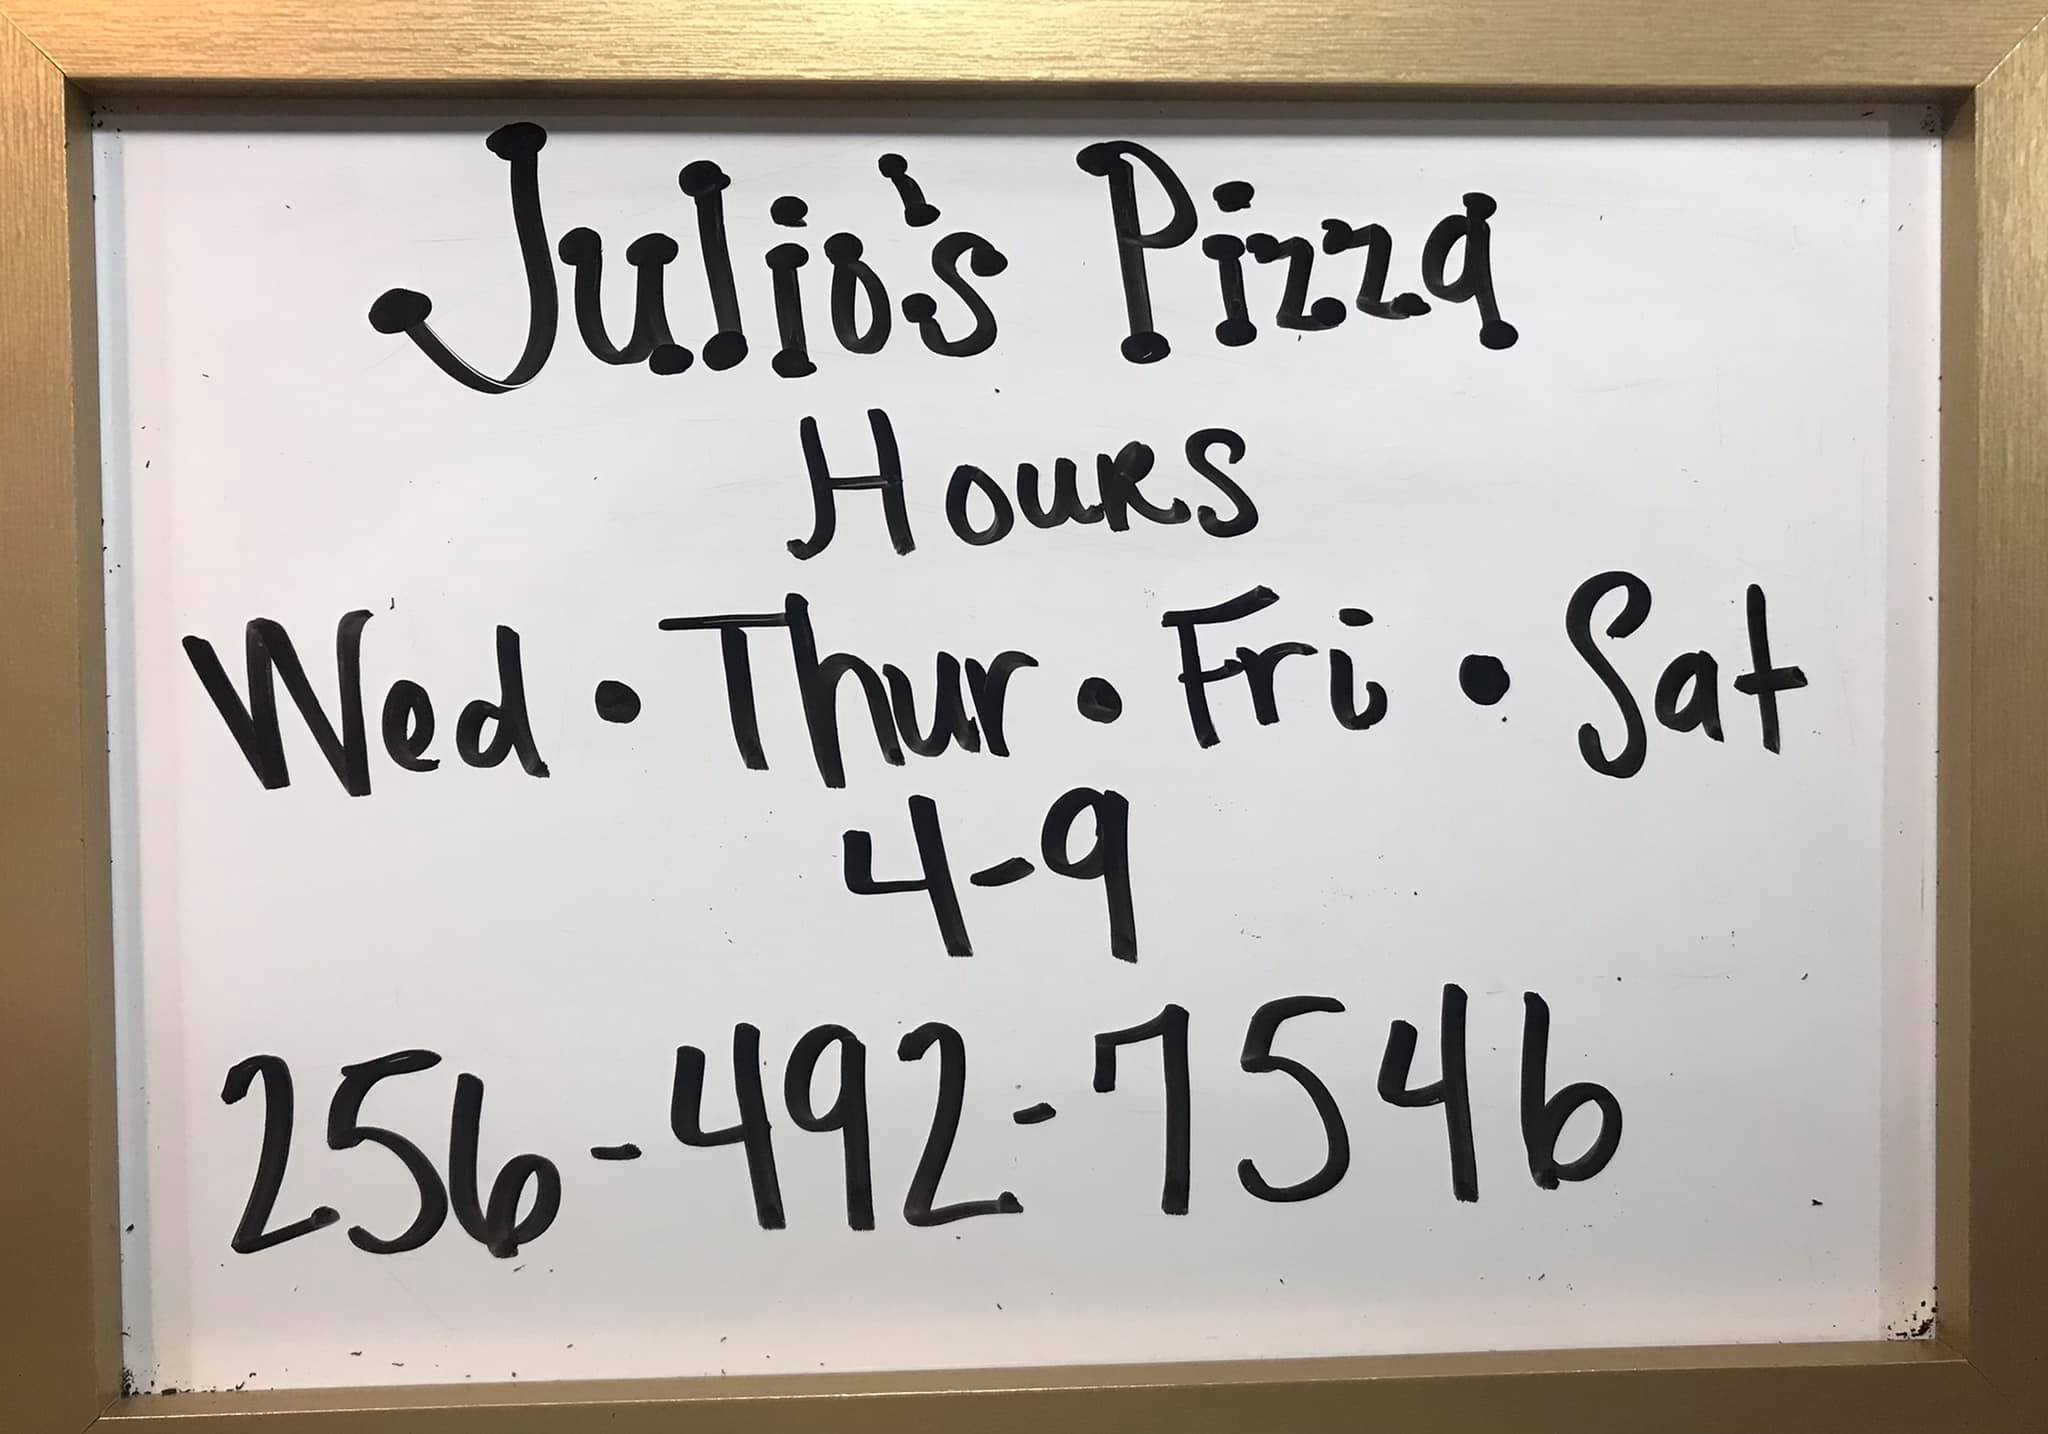 Julio's Pizza
Hours
Wed • Thur • Fri • Sat
4-9
256-492-7546